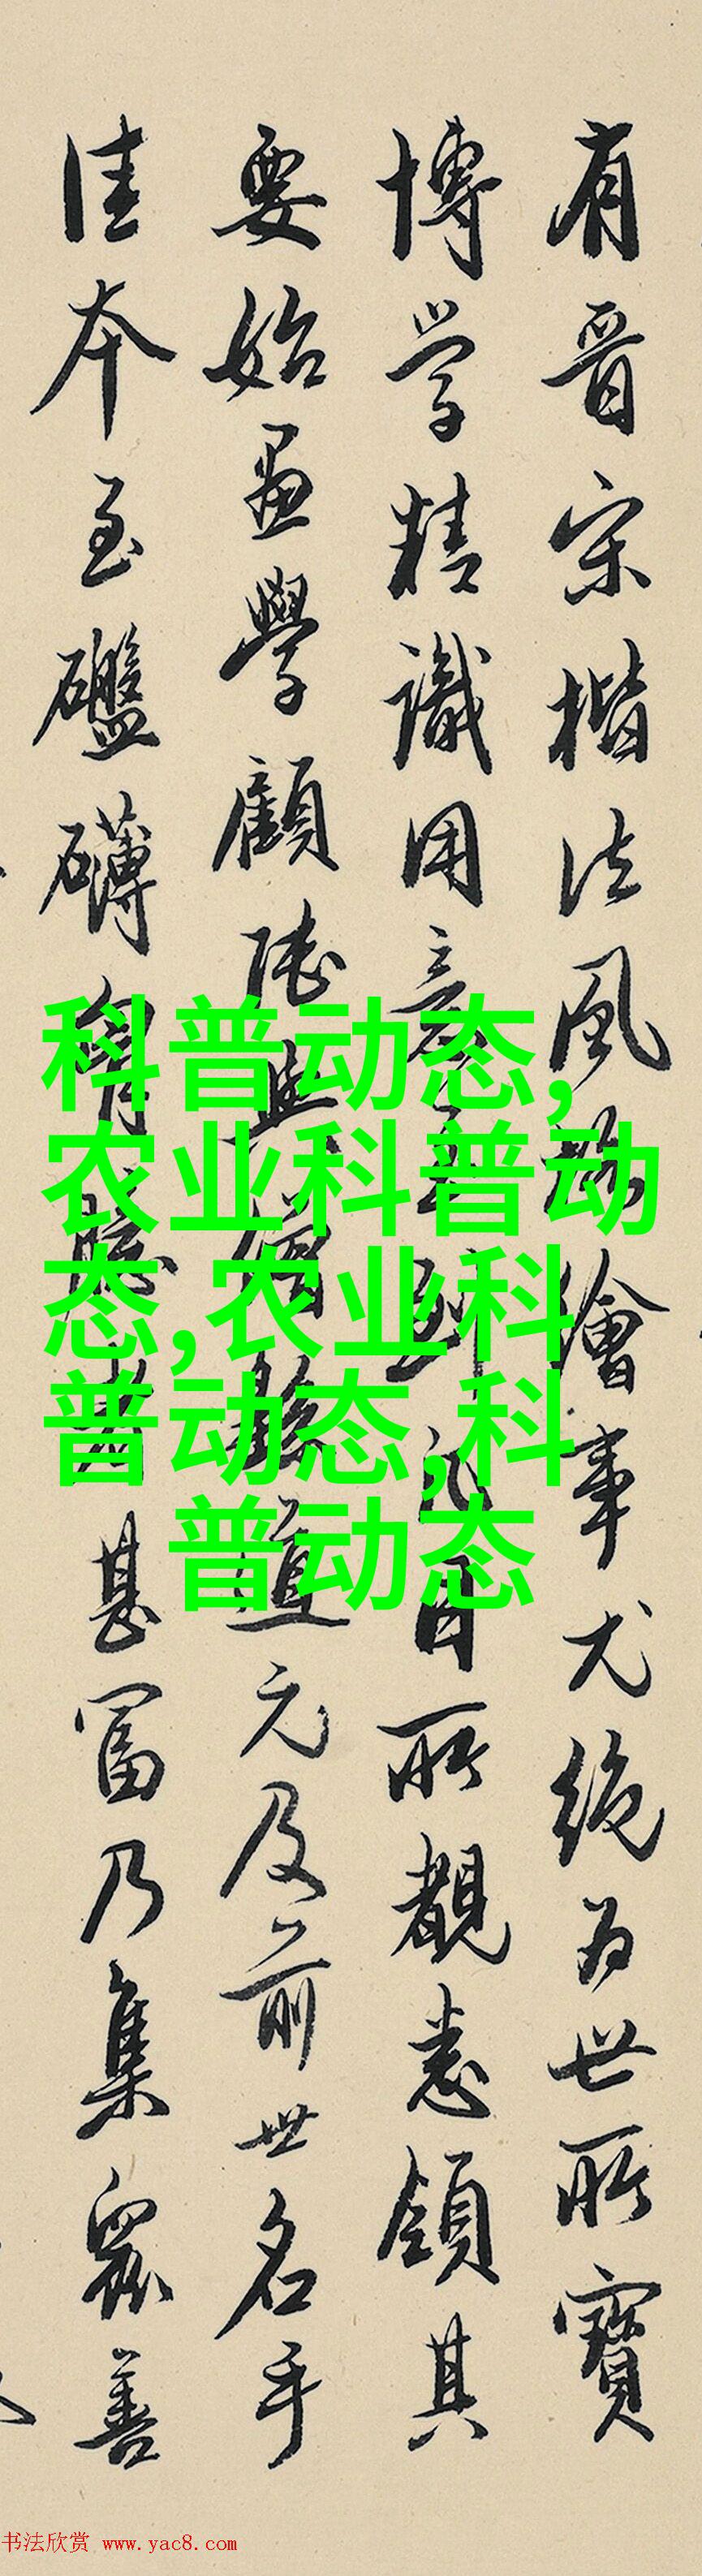 有晋宋楷法风
繪事尤绝为世所寶
博学精識用意
目所覩悉領其
要始画學顧陆
道元及前世名手
佳本至礚礴胷臆
甚富乃集眾善
科普动态,
农业科普动
态,农业科
普动态,科
普动态
书法欣赏 www.yac8.com